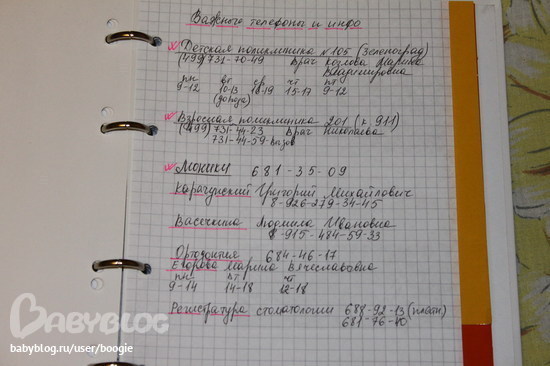 Важные телефоны и инфо
Детская поликлиника №105 (Зеленоград)
(499) 731-70-49 Врач Козлова Марина
Владимировна
пн вт ср чт пт
9-12 10-13 16-19 15-17 9-12
Взрослая поликлиника 201 (к 911)
(499) 731-44-23 Врач Николаева
731-44-59 вызов
Моники 681-35-09
Карачунский Григорий Михайлович
8-926-279-34-45
Васечкина Людмила Ивановна
8-915-484-59-33
Ортодонтия 684-46-17
Егорова Марина Вячеславовна
пн вт чт
9-14 14-18 12-18
Регистратура стоматологии 688-92-13 (платн)
681-76-10
BABYBLOG
babyblog.ru/user/boogie